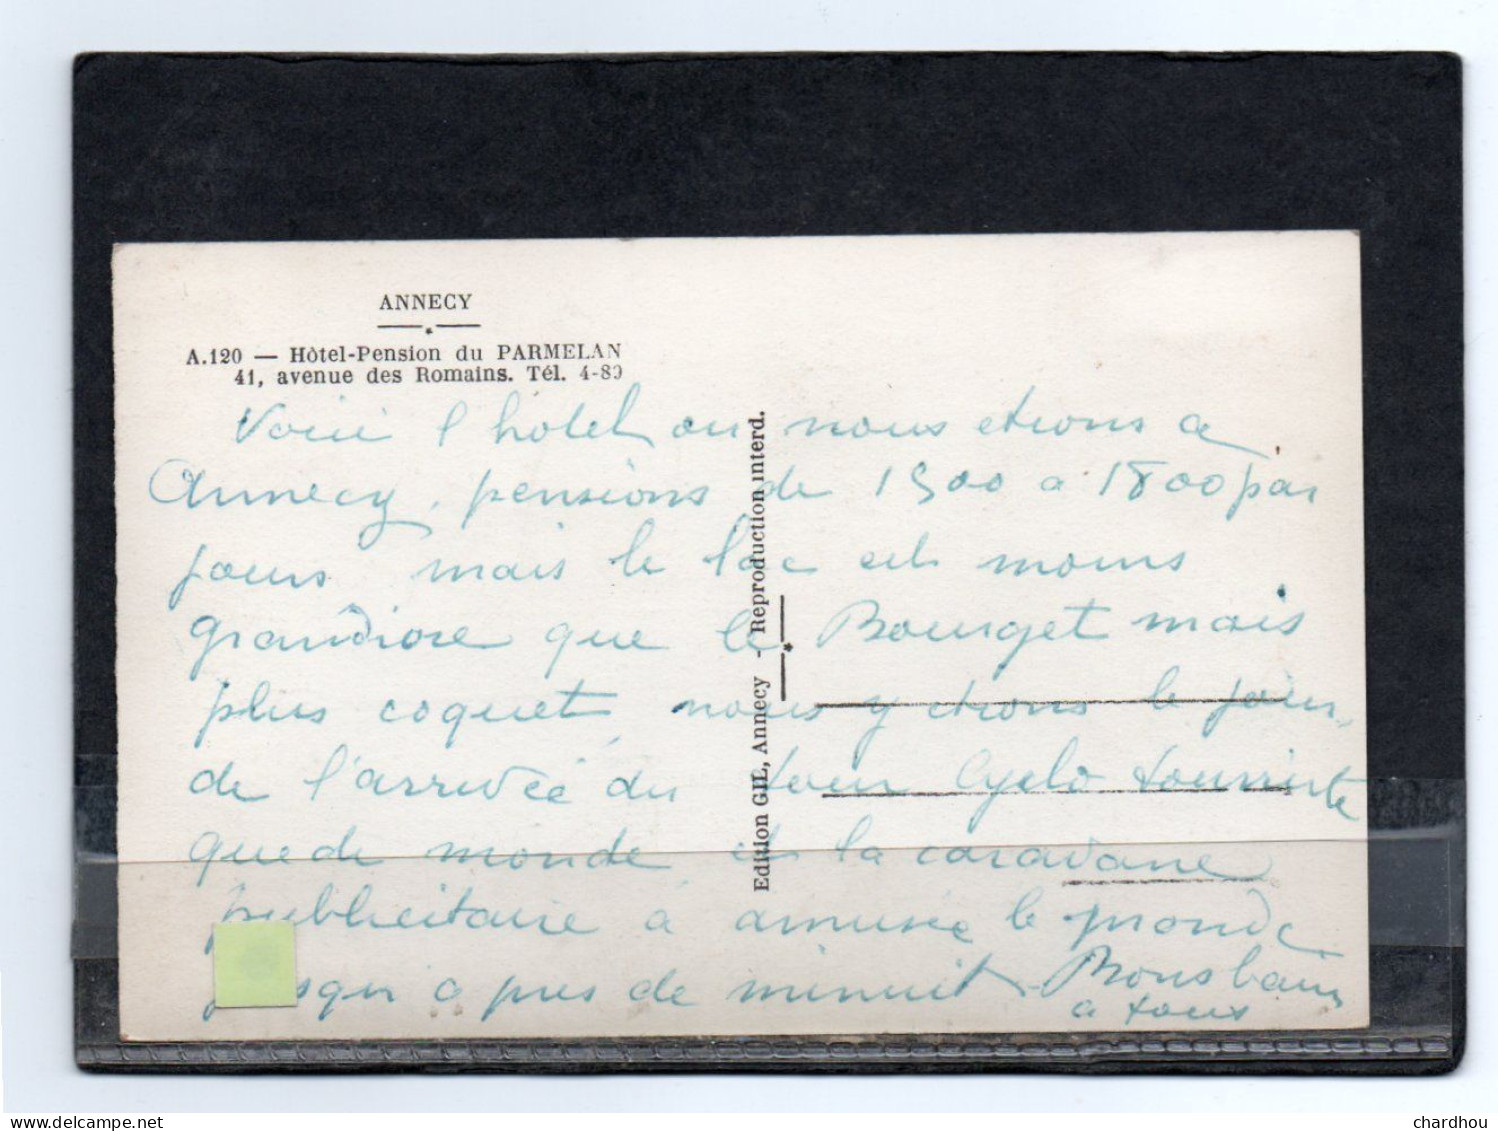 ANNECY
A.120 — Hôtel-Pension du PARMELAN
41, avenue des Romains. Tél. 4-89
Voici l hotel ou nous etions a
Annecy. pensions de 1500 a 1800 par
jours mais le lac est moins
grandiose que le Bourget mais
plus coquet, nous y etions le jour
de l'arrivée du tour Cyclo touriste
que de monde et la caravane
publicitaire à amusée le monde
jusqu a pres de minuit. Bons baisers
a tous
Edition GIL, Annecy - Reproduction interd.
delcampe.net
chardhou